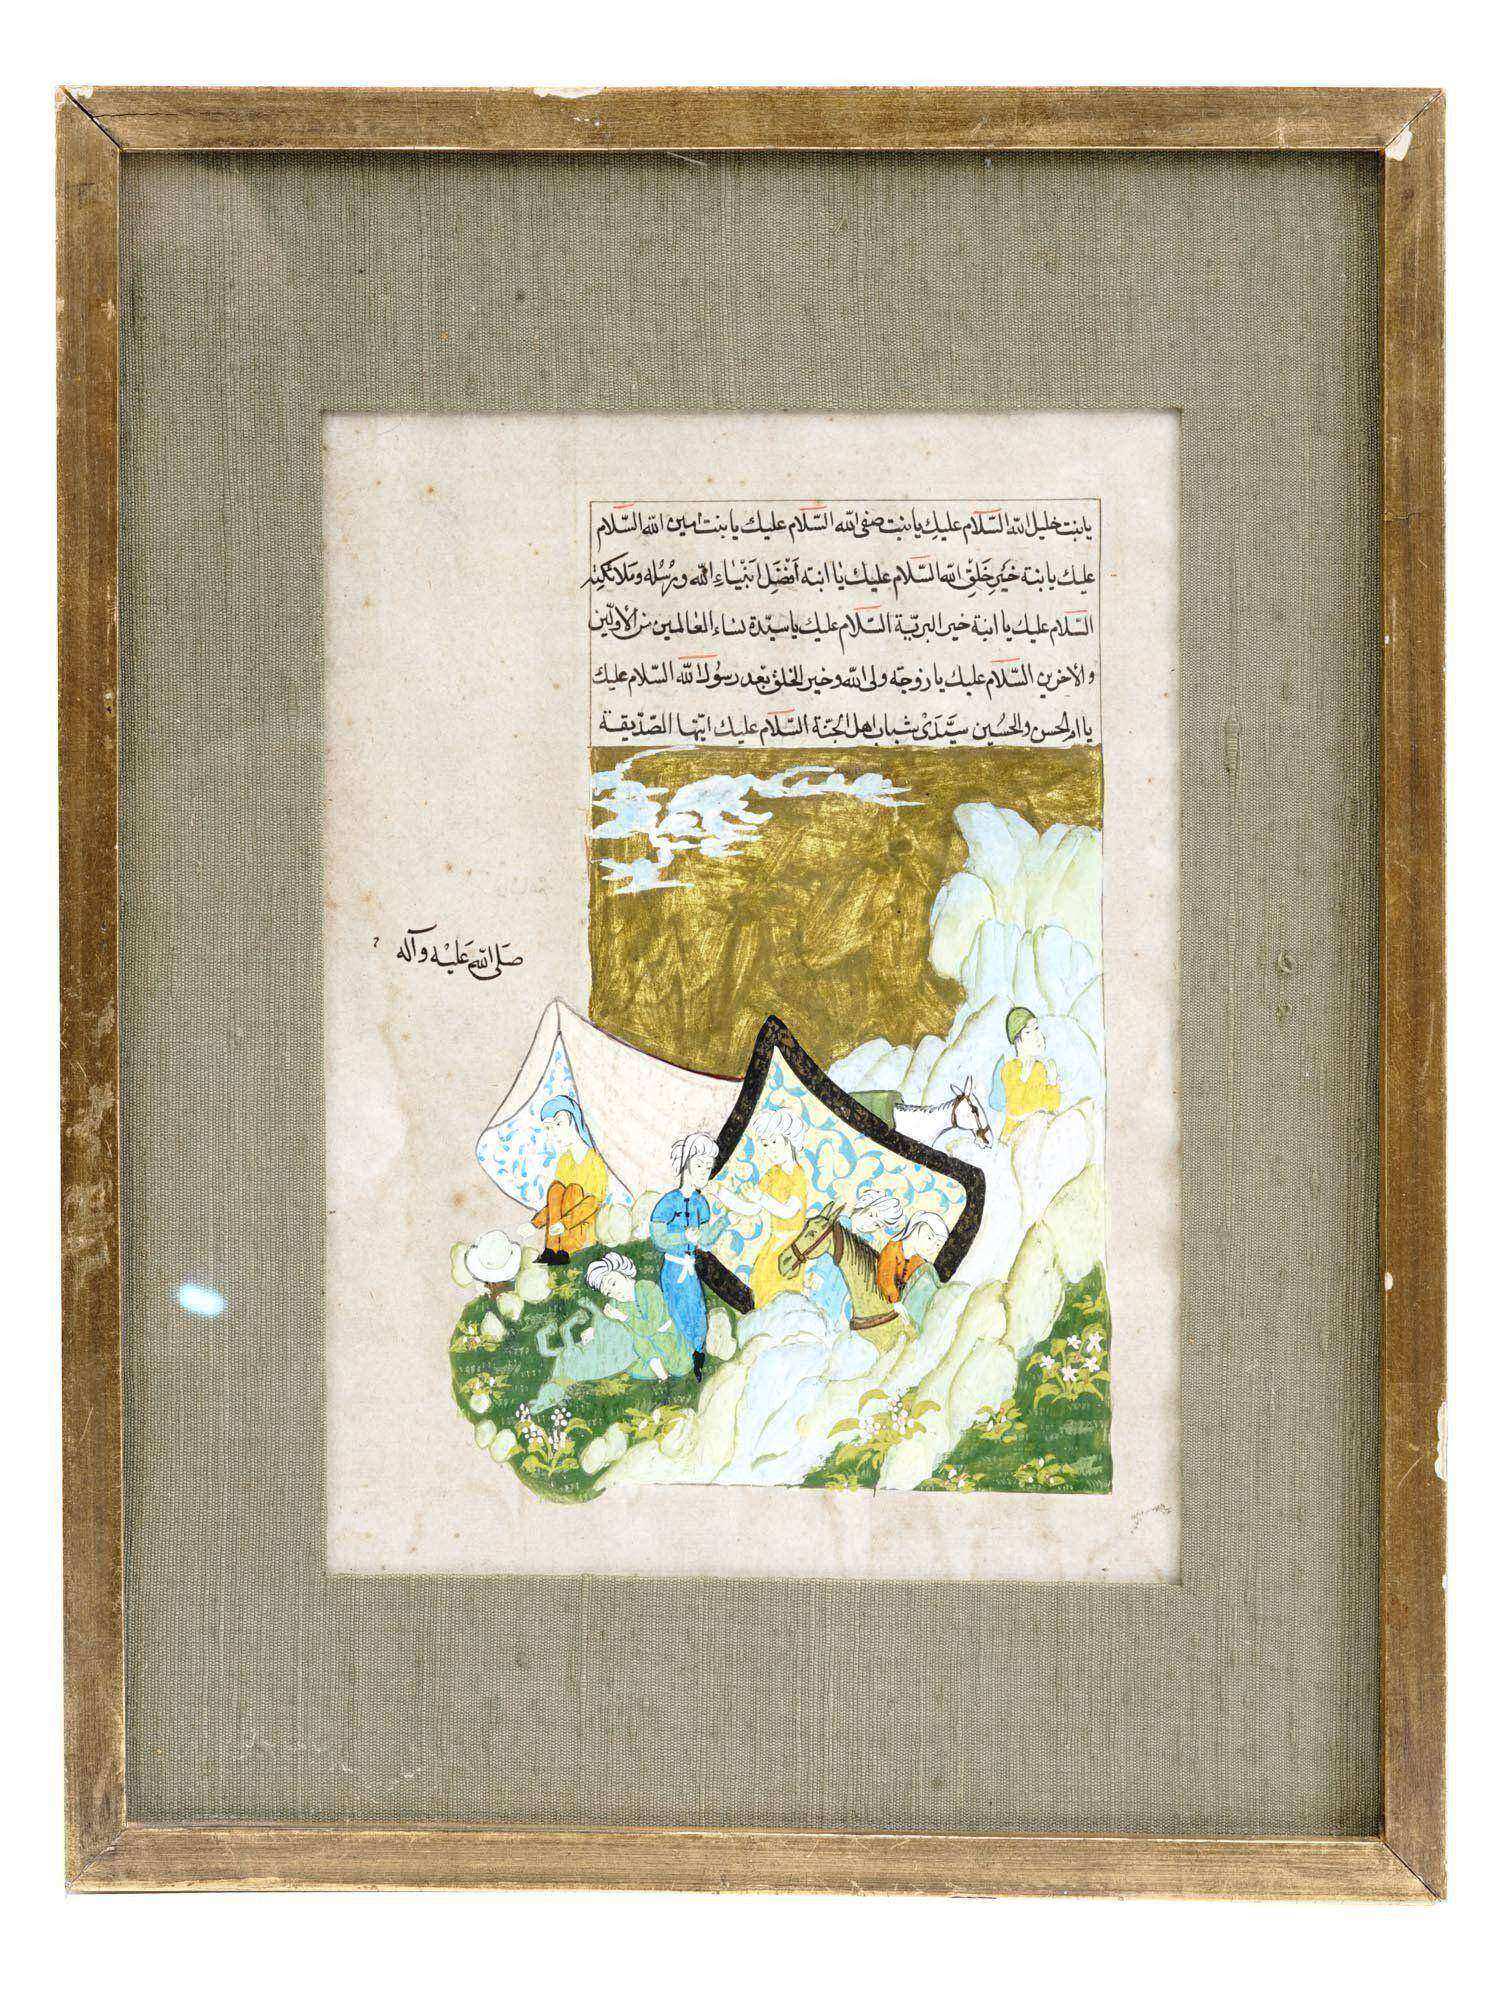 يا بنت خليل الله السَّلام عليكِ يا بنت صفى الله السَّلام عليك يا بنت امين الله السَّلام
عليك يا بنة خَيْرِ خَلقِ الله السَّلام عليك يا ابنة اَفضَلِ اَنْبِيَاءِ الله ورُسُله وملائكته
السَّلام عليك يا ابنة خير البريّة السَّلام عليك يا سيّدة نساء العالمين من الأولين
والاخرين السَّلام عليك يا زوجة ولى الله وخير الخلق بَعد رسُول الله السَّلام عليك
يا ام الحسن والحسين سيَّدَىْ شباب اهل الجنّة السَّلام عليك ايّتها الصّدّيقة
صَلى الله عَليْه وآله